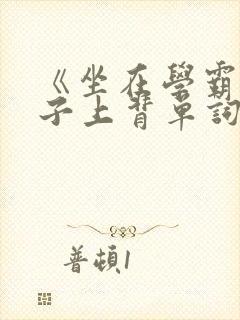 《坐在學霸
子上背單詞
普頓1